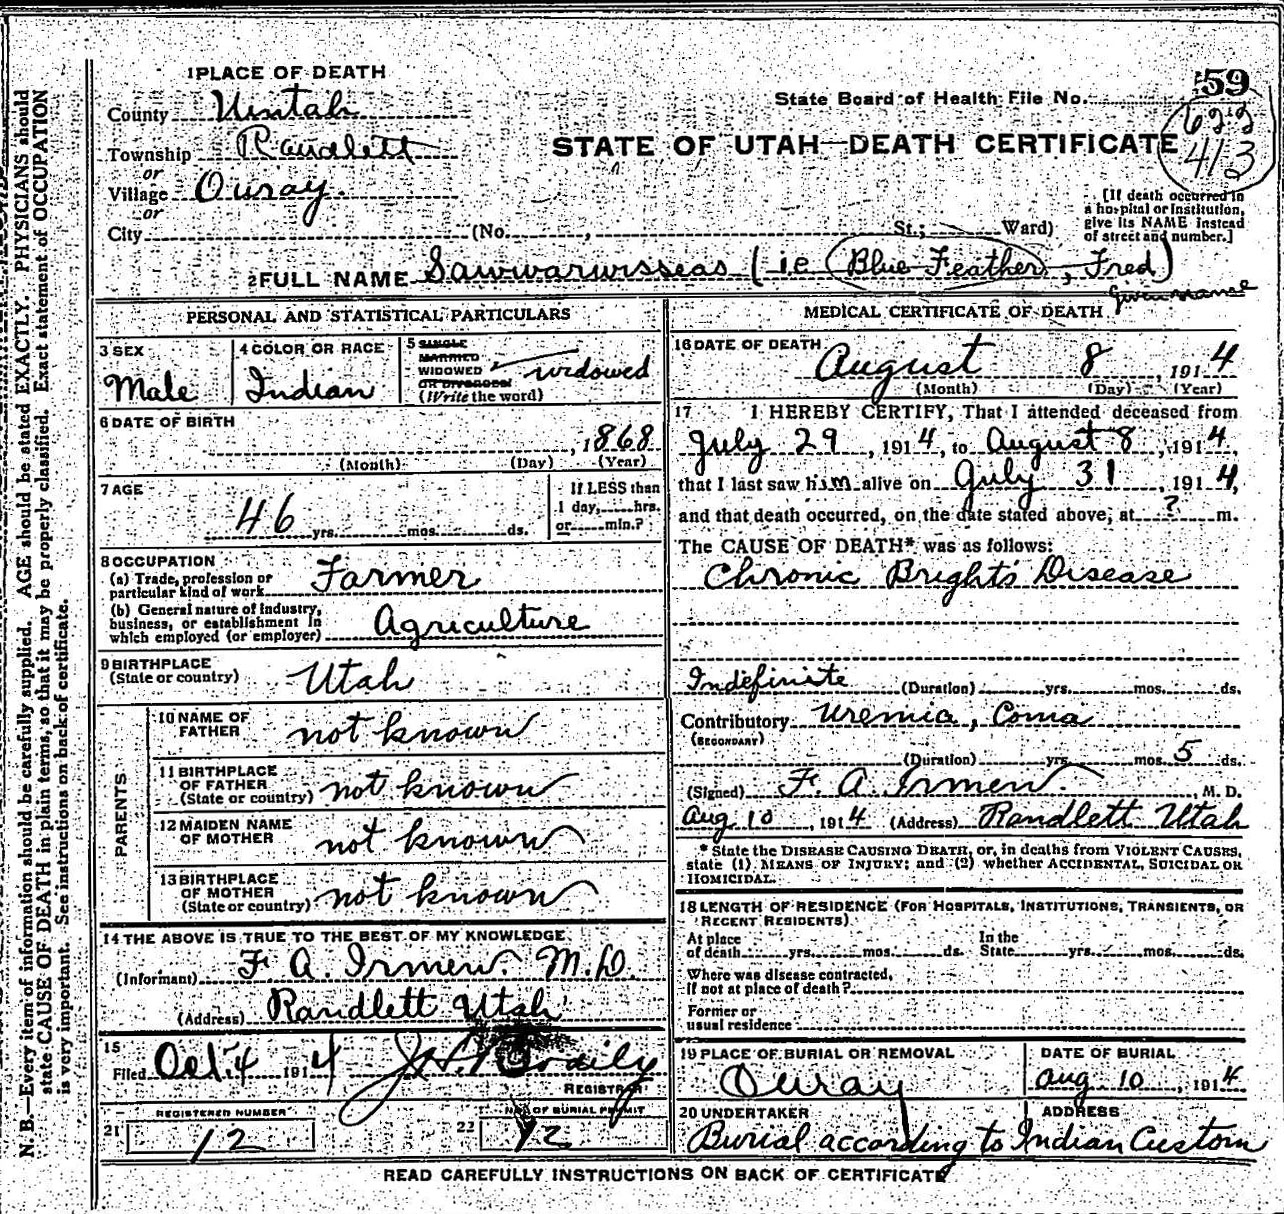 1 PLACE OF DEATH
County Uintah
Township Randlett
or
Village Ouray.
or
City (No. , St.; Ward)
State Board of Health File No. 59
622
413
STATE OF UTAH—DEATH CERTIFICATE
[If death occurred in
a hospital or institution,
give its NAME instead
of street and number.]
2 FULL NAME Sawwarwisseas (i.e. Blue Feather, Fred)
given name
PERSONAL AND STATISTICAL PARTICULARS
3 SEX
Male
4 COLOR OR RACE
Indian
5 SINGLE
MARRIED
WIDOWED
OR DIVORCED
(Write the word)
widowed
6 DATE OF BIRTH
, 1868
(Month) (Day) (Year)
7 AGE
46 yrs. mos. ds.
If LESS than
1 day, hrs.
or min.?
8 OCCUPATION
(a) Trade, profession or
particular kind of work Farmer
(b) General nature of industry,
business, or establishment in
which employed (or employer) Agriculture
9 BIRTHPLACE
(State or country) Utah
PARENTS
10 NAME OF
FATHER not known
11 BIRTHPLACE
OF FATHER
(State or country) not known
12 MAIDEN NAME
OF MOTHER not known
13 BIRTHPLACE
OF MOTHER
(State or country) not known
14 THE ABOVE IS TRUE TO THE BEST OF MY KNOWLEDGE
(Informant) F. A. Irmen. M.D.
(Address) Randlett Utah
15
Filed Oct. 4 1914
REGISTRAR
REGISTERED NUMBER
21 12
NO. OF BURIAL PERMIT
22 12
MEDICAL CERTIFICATE OF DEATH
16 DATE OF DEATH
August 8, 1914
(Month) (Day) (Year)
17 I HEREBY CERTIFY, That I attended deceased from
July 29, 1914, to August 8, 1914,
that I last saw him alive on July 31, 1914,
and that death occurred, on the date stated above, at ? m.
The CAUSE OF DEATH* was as follows:
Chronic Bright's Disease
Indefinite (Duration) yrs. mos. ds.
Contributory Uremia, Coma
(SECONDARY)
(Duration) yrs. mos. 5 ds.
(Signed) F. A. Irmen. , M. D.
Aug 10, 1914 (Address) Randlett Utah
* State the DISEASE CAUSING DEATH, or, in deaths from VIOLENT CAUSES,
state (1) MEANS OF INJURY; and (2) whether ACCIDENTAL, SUICIDAL OR
HOMICIDAL.
18 LENGTH OF RESIDENCE (FOR HOSPITALS, INSTITUTIONS, TRANSIENTS, OR
RECENT RESIDENTS)
At place
of death yrs. mos. ds.
In the
State yrs. mos. ds.
Where was disease contracted,
if not at place of death?
Former or
usual residence
19 PLACE OF BURIAL OR REMOVAL
Ouray
DATE OF BURIAL
Aug 10, 1914
20 UNDERTAKER ADDRESS
Burial according to Indian Custom
READ CAREFULLY INSTRUCTIONS ON BACK OF CERTIFICATE
N. B.—Every item of information should be carefully supplied. AGE should be stated EXACTLY. PHYSICIANS should
state CAUSE OF DEATH in plain terms, so that it may be properly classified. Exact statement of OCCUPATION
is very important. See instructions on back of certificate.